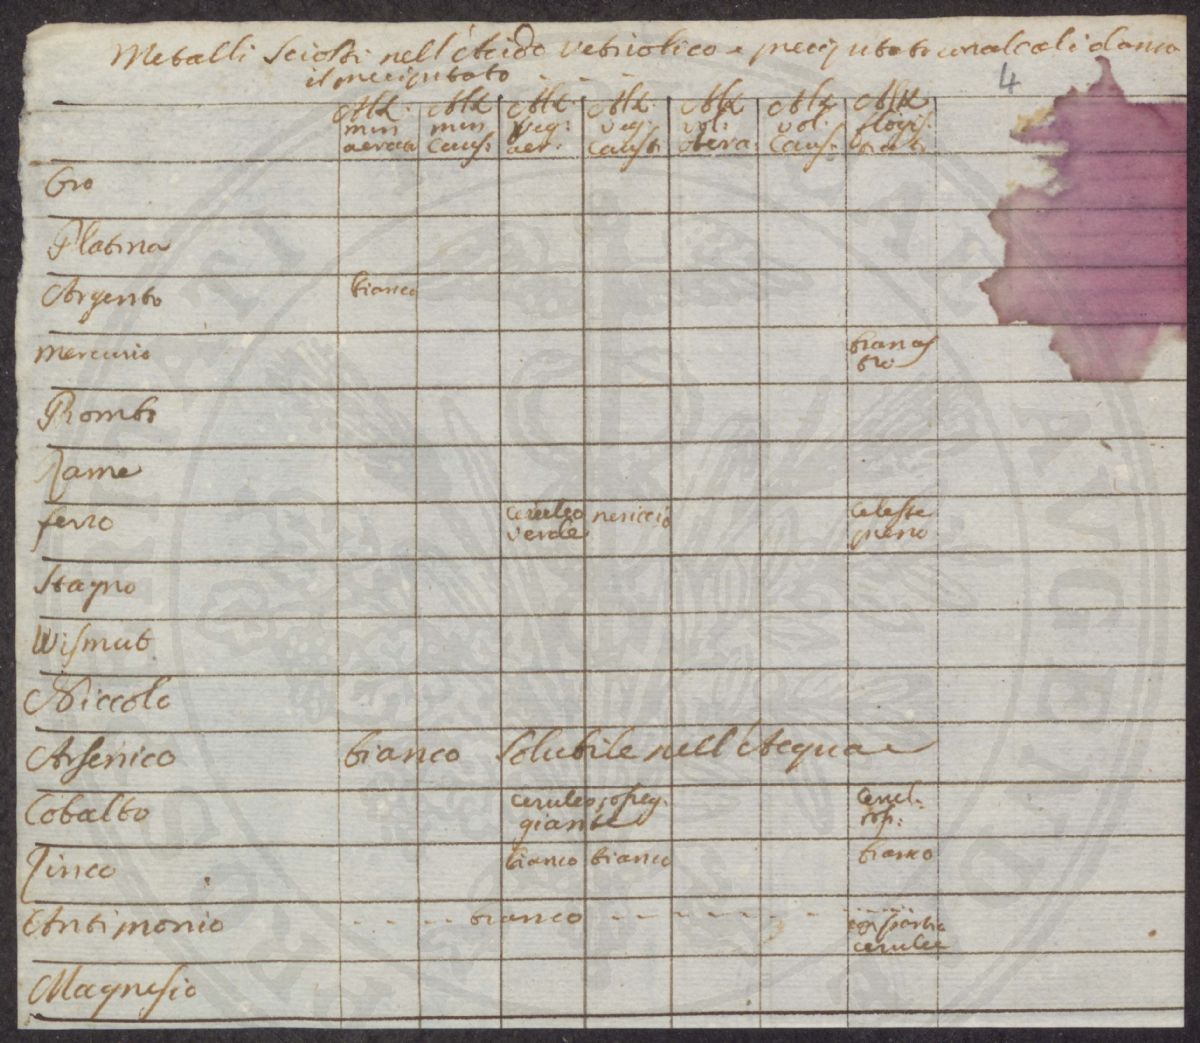 Metalli Sciolti nell'Acido vetriolico e precipitati con alcali danno
il precipitato
4
Alk. min aerato Alk min caus: Alk. veg: aer: Alk. veg: caust: Alk vol: aera: Alk vol: Caus: Alk flogis: ticati
Oro
Platina
Argento bianco
Mercurio biancas tro
Piombo
Rame
ferro ceruleo verde nericcio celeste pieno
Stagno
Wismut
Niccolo
Arsenico bianco Solubile nell'Acqua
Cobalto ceruleo rosseg. giante cerul. ros:
Zinco bianco bianco bianco
Antimonio - - - - bianco - - - - - - - cerulee
Magnesio